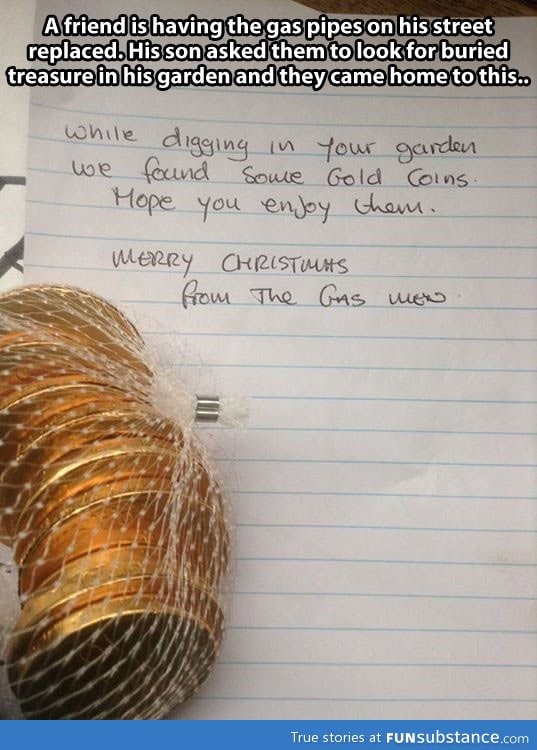 A friend is having the gas pipes on his street
replaced. His son asked them to look for buried
treasure in his garden and they came home to this..
while digging in Your garden
we found Some Gold Coins.
Hope you enjoy them.
MERRY CHRISTMAS
from The GAS MEN
True stories at FUNsubstance.com